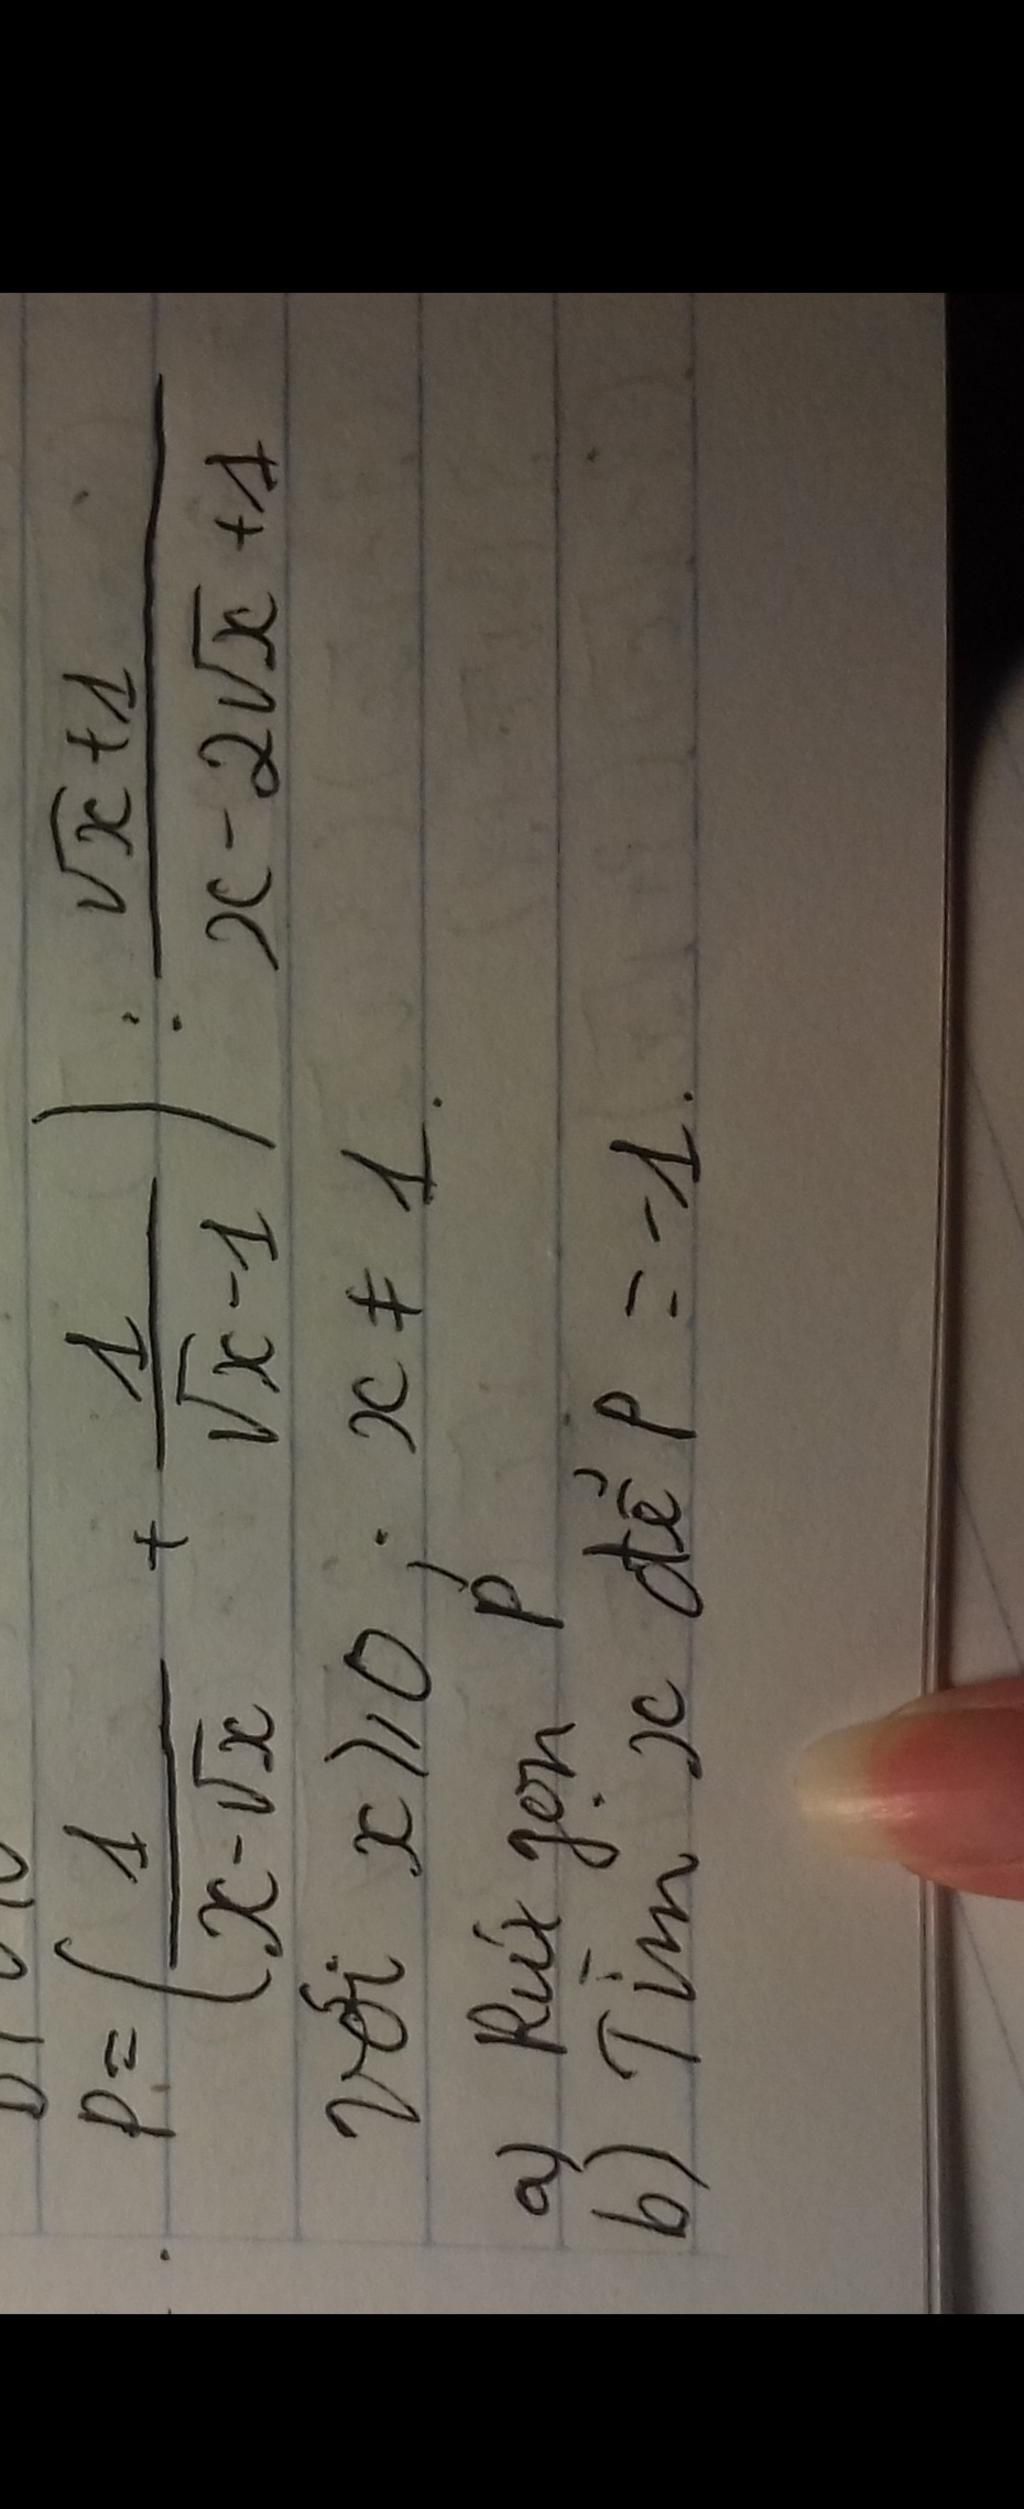 P = ( 1/(x - √x) + 1/(√x - 1) ) : (√x + 1)/(x - 2√x + 1)
với x ⩾ 0 ; x ≠ 1.
a) Rút gọn P
b) Tìm x để P = -1.